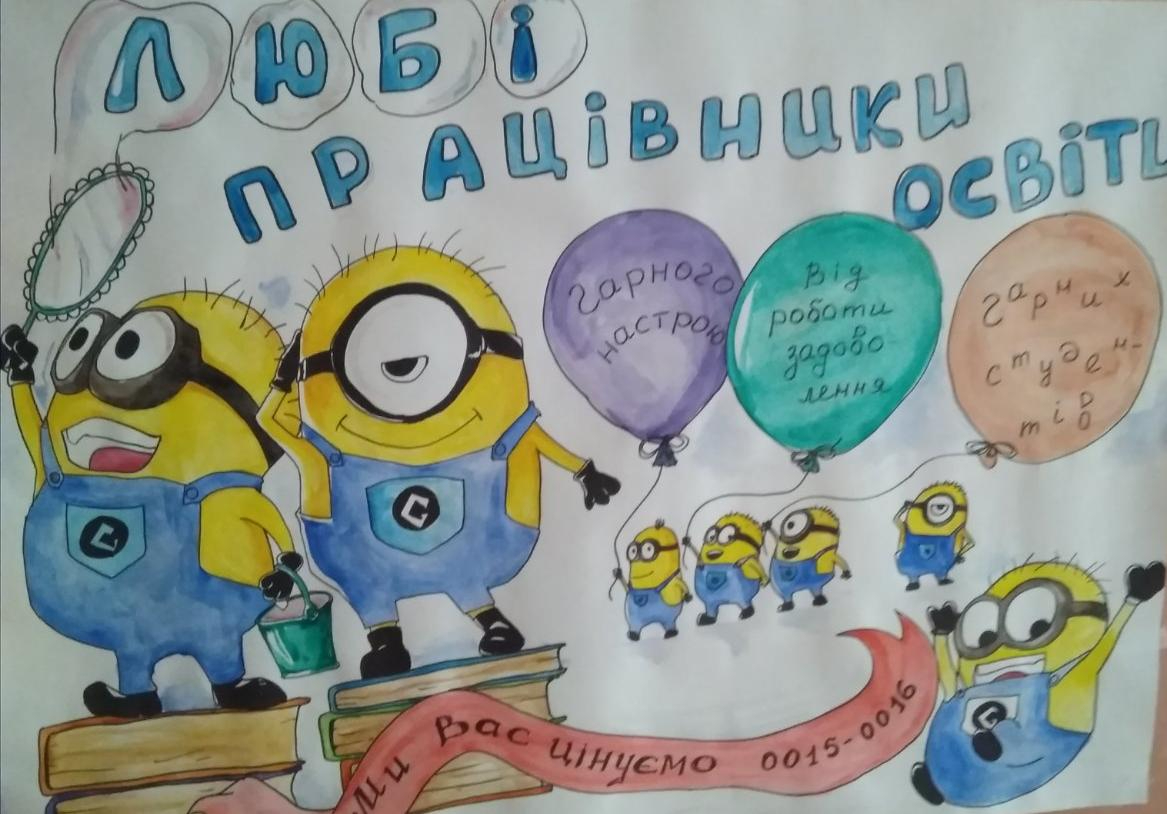 ЛЮБІ
ПРАЦІВНИКИ
ОСВІТИ
Гарного
настрою
Від
роботи
задово-
лення
гарних
студен-
тів
Ми Вас цінуємо 0015-0016